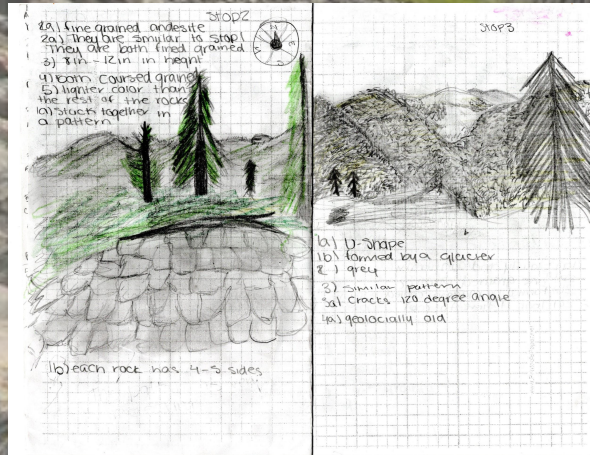 Stop2
2a) fine grained andesite
2a) They are similar to stop1
They are both fined grained
3) 8in - 12in in height
4) both coursed grained
5) lighter color than
the rest of the rocks
1a) Stuck together in
a pattern
N
E
1b) each rock has 4-5 sides
Stop3
1a) U-Shape
1b) formed by a glacier
2) grey
3) similar pattern
3a) Cracks 120 degree angle
4a) geolocially old